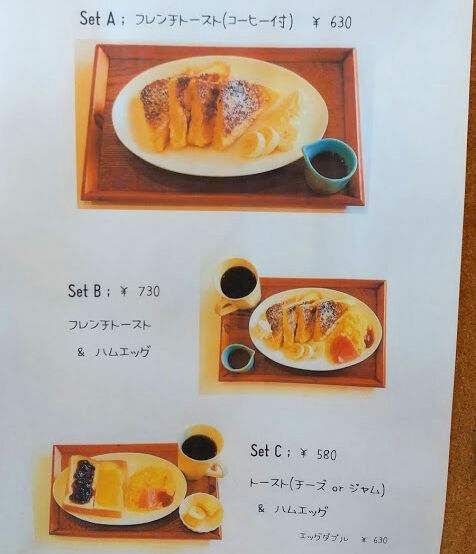 Set A ; フレンチトースト(コーヒー付) ¥ 630
Set B ; ¥ 730
フレンチトースト
& ハムエッグ
Set C ; ¥ 580
トースト(チーズ or ジャム)
& ハムエッグ
エッグダブル ¥ 630